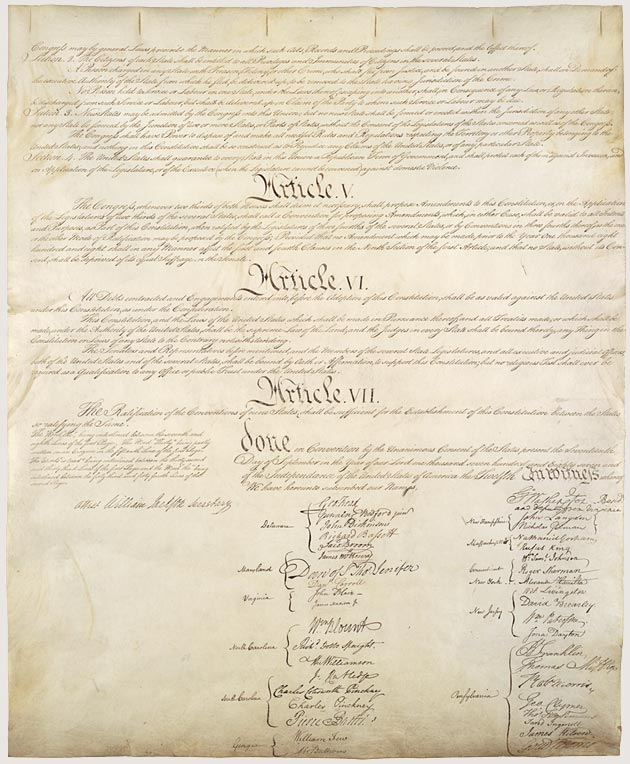 Congress may by general Laws prescribe the Manner in which such Acts, Records and Proceedings shall be proved, and the Effect thereof.
Section. 2. The Citizens of each State shall be entitled to all Privileges and Immunities of Citizens in the several States.
A Person charged in any State with Treason, Felony, or other Crime, who shall flee from Justice, and be found in another State, shall on Demand of
the executive Authority of the State from which he fled, be delivered up, to be removed to the State having Jurisdiction of the Crime.
No Person held to Service or Labour in one State, under the Laws thereof, escaping into another, shall, in Consequence of any Law or Regulation therein,
be discharged from such Service or Labour, but shall be delivered up on Claim of the Party to whom such Service or Labour may be due.
Section. 3. New States may be admitted by the Congress into this Union; but no new State shall be formed or erected within the Jurisdiction of any other State;
nor any State be formed by the Junction of two or more States, or Parts of States, without the Consent of the Legislatures of the States concerned as well as of the Congress.
The Congress shall have Power to dispose of and make all needful Rules and Regulations respecting the Territory or other Property belonging to the
United States; and nothing in this Constitution shall be so construed as to Prejudice any Claims of the United States, or of any particular State.
Section. 4. The United States shall guarantee to every State in this Union a Republican Form of Government, and shall protect each of them against Invasion; and
on Application of the Legislature, or of the Executive (when the Legislature cannot be convened) against domestic Violence.
Article. V.
The Congress, whenever two thirds of both Houses shall deem it necessary, shall propose Amendments to this Constitution, or, on the Application
of the Legislatures of two thirds of the several States, shall call a Convention for proposing Amendments, which, in either Case, shall be valid to all Intents
and Purposes, as Part of this Constitution, when ratified by the Legislatures of three fourths of the several States, or by Conventions in three fourths thereof, as the one
or the other Mode of Ratification may be proposed by the Congress; Provided that no Amendment which may be made prior to the Year One thousand eight
hundred and eight shall in any Manner affect the first and fourth Clauses in the Ninth Section of the first Article; and that no State, without its Con-
sent, shall be deprived of its equal Suffrage in the Senate.
Article. VI.
All Debts contracted and Engagements entered into, before the Adoption of this Constitution, shall be as valid against the United States
under this Constitution, as under the Confederation.
This Constitution, and the Laws of the United States which shall be made in Pursuance thereof; and all Treaties made, or which shall be
made, under the Authority of the United States, shall be the supreme Law of the Land; and the Judges in every State shall be bound thereby, any Thing in the
Constitution or Laws of any State to the Contrary notwithstanding.
The Senators and Representatives before mentioned, and the Members of the several State Legislatures, and all executive and judicial Officers,
both of the United States and of the several States, shall be bound by Oath or Affirmation, to support this Constitution; but no religious Test shall ever be
required as a Qualification to any Office or public Trust under the United States.
Article. VII.
The Ratification of the Conventions of nine States, shall be sufficient for the Establishment of this Constitution between the States
so ratifying the Same.
The Word, "the," being interlined between the seventh and
eighth Lines of the first Page, The Word "Thirty" being partly
written on an Erazure in the fifteenth Line of the first Page,
The Words "is tried" being interlined between the thirty second
and thirty third Lines of the first Page and the Word "the" being
interlined between the forty third and forty fourth Lines of the
second Page.
Attest William Jackson Secretary
done in Convention by the Unanimous Consent of the States present the Seventeenth
Day of September in the Year of our Lord one thousand seven hundred and Eighty seven and
of the Independance of the United States of America the Twelfth In Witness whereof
We have hereunto subscribed our Names,
Delaware
Geo: Read
Gunning Bedford jun
John Dickinson
Richard Bassett
Jaco: Broom
Maryland
James McHenry
Dan of St Thos Jenifer
Danl Carroll
Virginia
John Blair
James Madison Jr
North Carolina
Wm Blount
Richd Dobbs Spaight
Hu Williamson
South Carolina
J. Rutledge
Charles Cotesworth Pinckney
Charles Pinckney
Pierce Butler
Georgia
William Few
Abr Baldwin
Go Washington Presidt
and deputy from Virginia
New Hampshire
John Langdon
Nicholas Gilman
Massachusetts
Nathaniel Gorham
Rufus King
Connecticut
Wm Saml Johnson
Roger Sherman
New York
Alexander Hamilton
New Jersey
Wil: Livingston
David Brearley
Wm Paterson
Jona: Dayton
Pensylvania
B Franklin
Thomas Mifflin
Robt Morris
Geo. Clymer
Thos FitzSimons
Jared Ingersoll
James Wilson
Gouv Morris